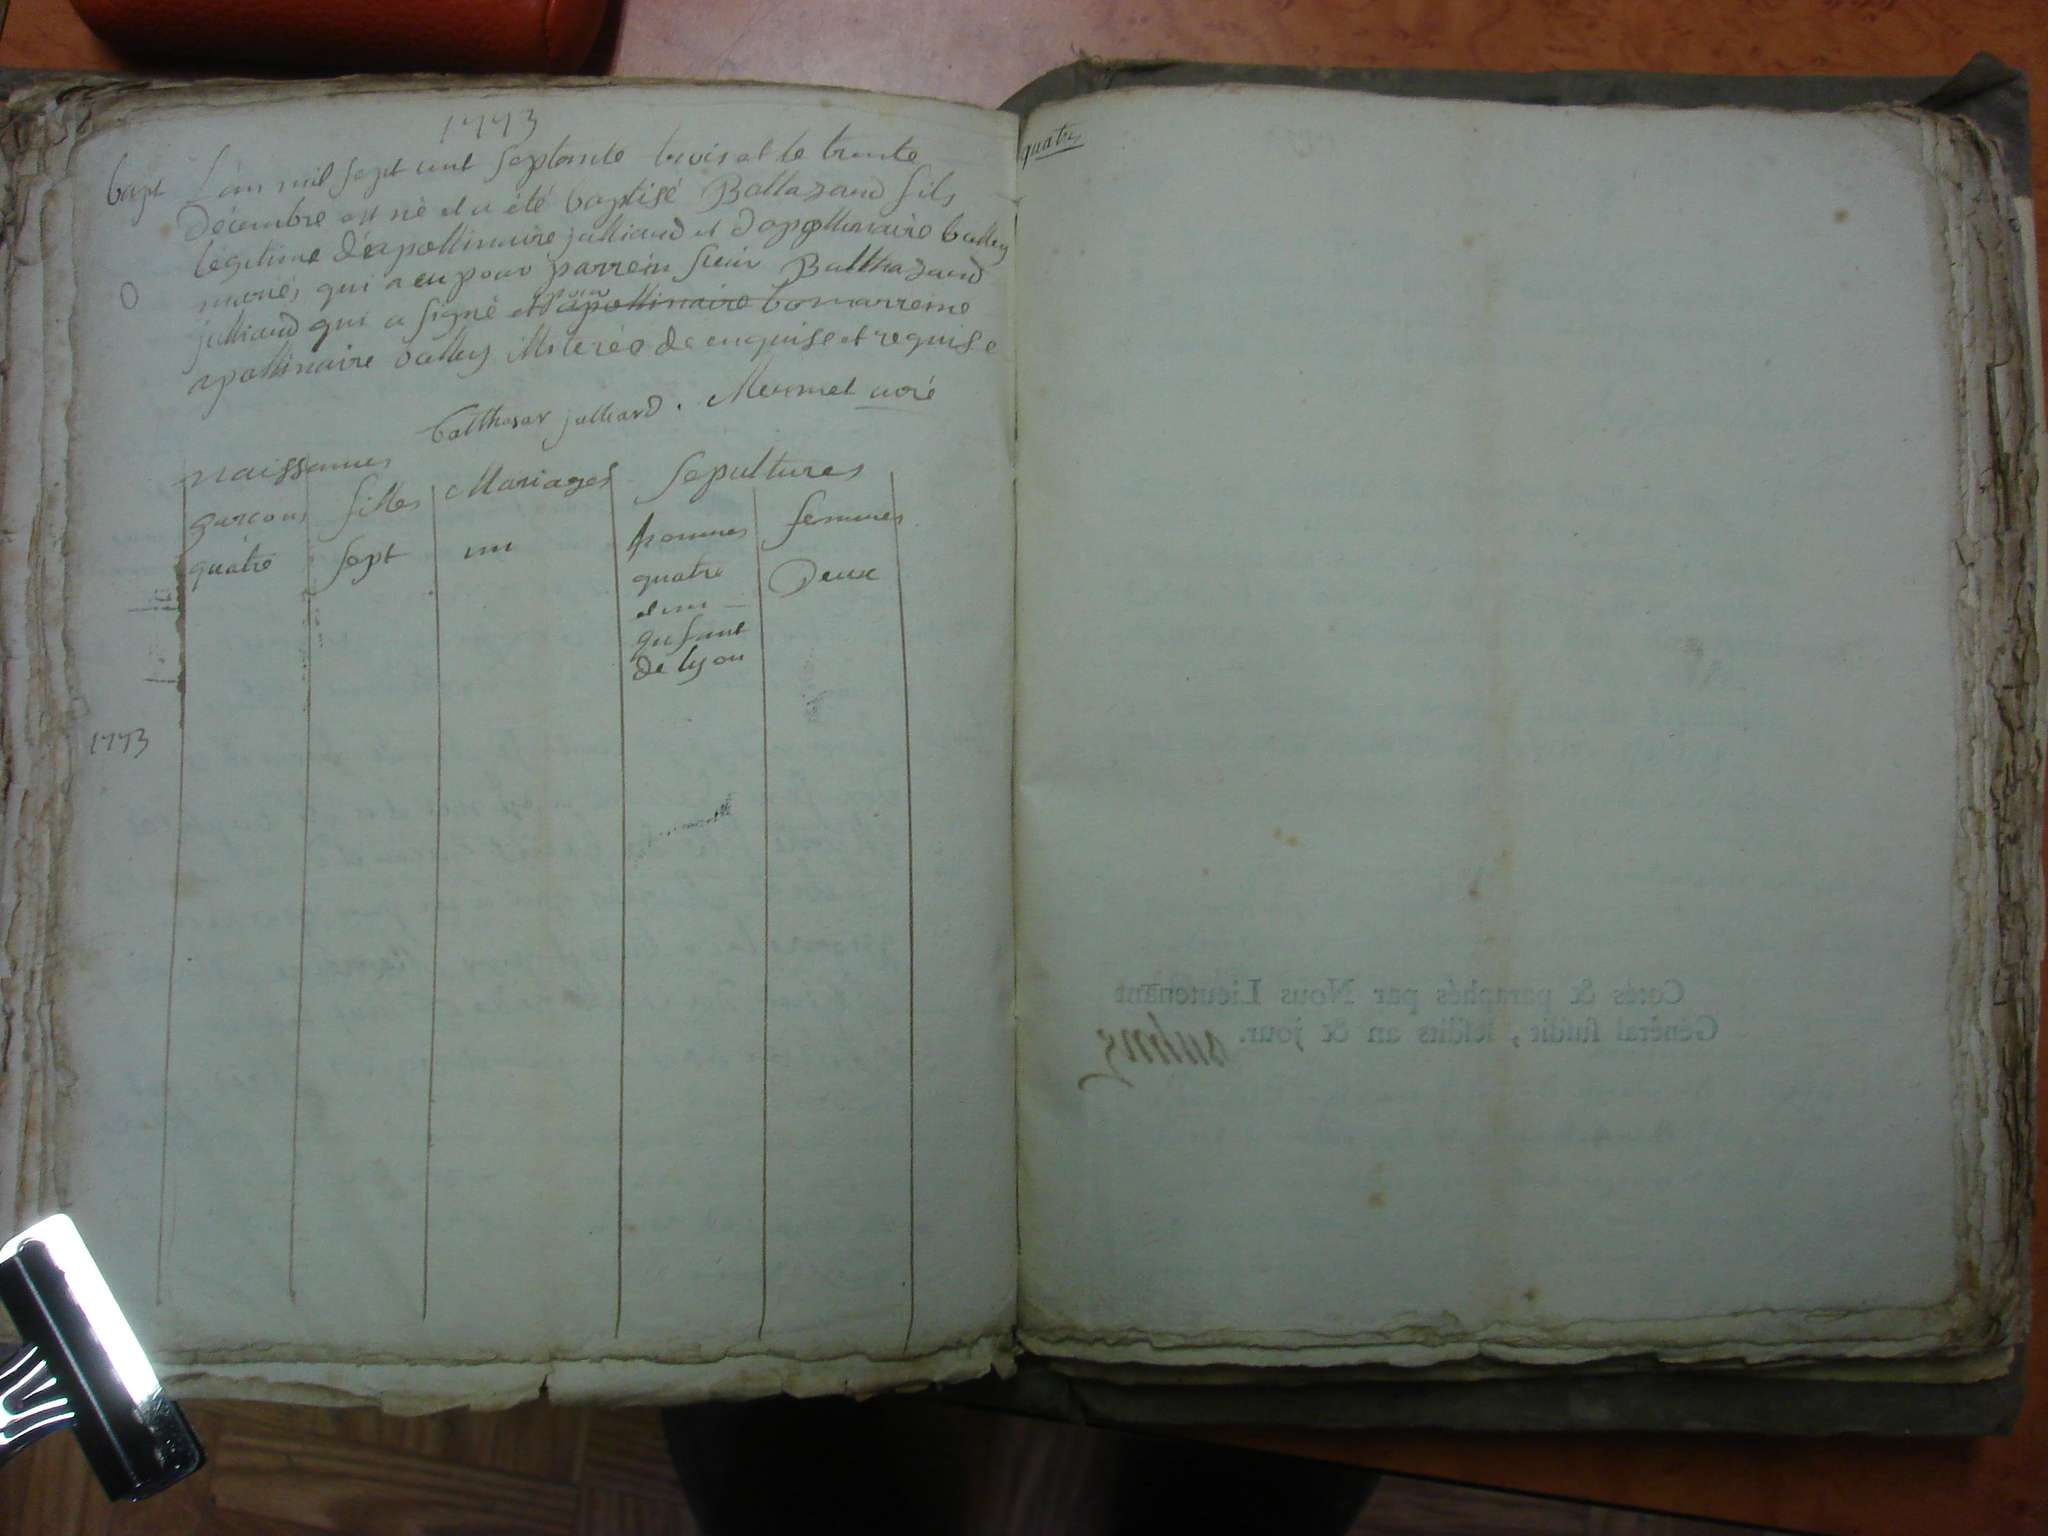 1773
bapt L'an mil sept cent septante trois et le trente
décembre est né et a été baptisé Baltazard fils
légitime d'apollinaire julliard et d'apollinaire balley
mariés, qui a eu pour parrein sieur Balthazard
julliard qui a signé et pour apollinaire ba marreine
apollinaire balley illiterée de enquise et requise
balthasar julliard. Mermet curé
naissances Mariages Sepultures
garcons filles hommes femmes
quatre sept un quatre Deux
et un
enfant
de lyon
1773
quatre
Cotés & paraphés par Nous Lieutenant
Général susdit, lesdits an & jour.